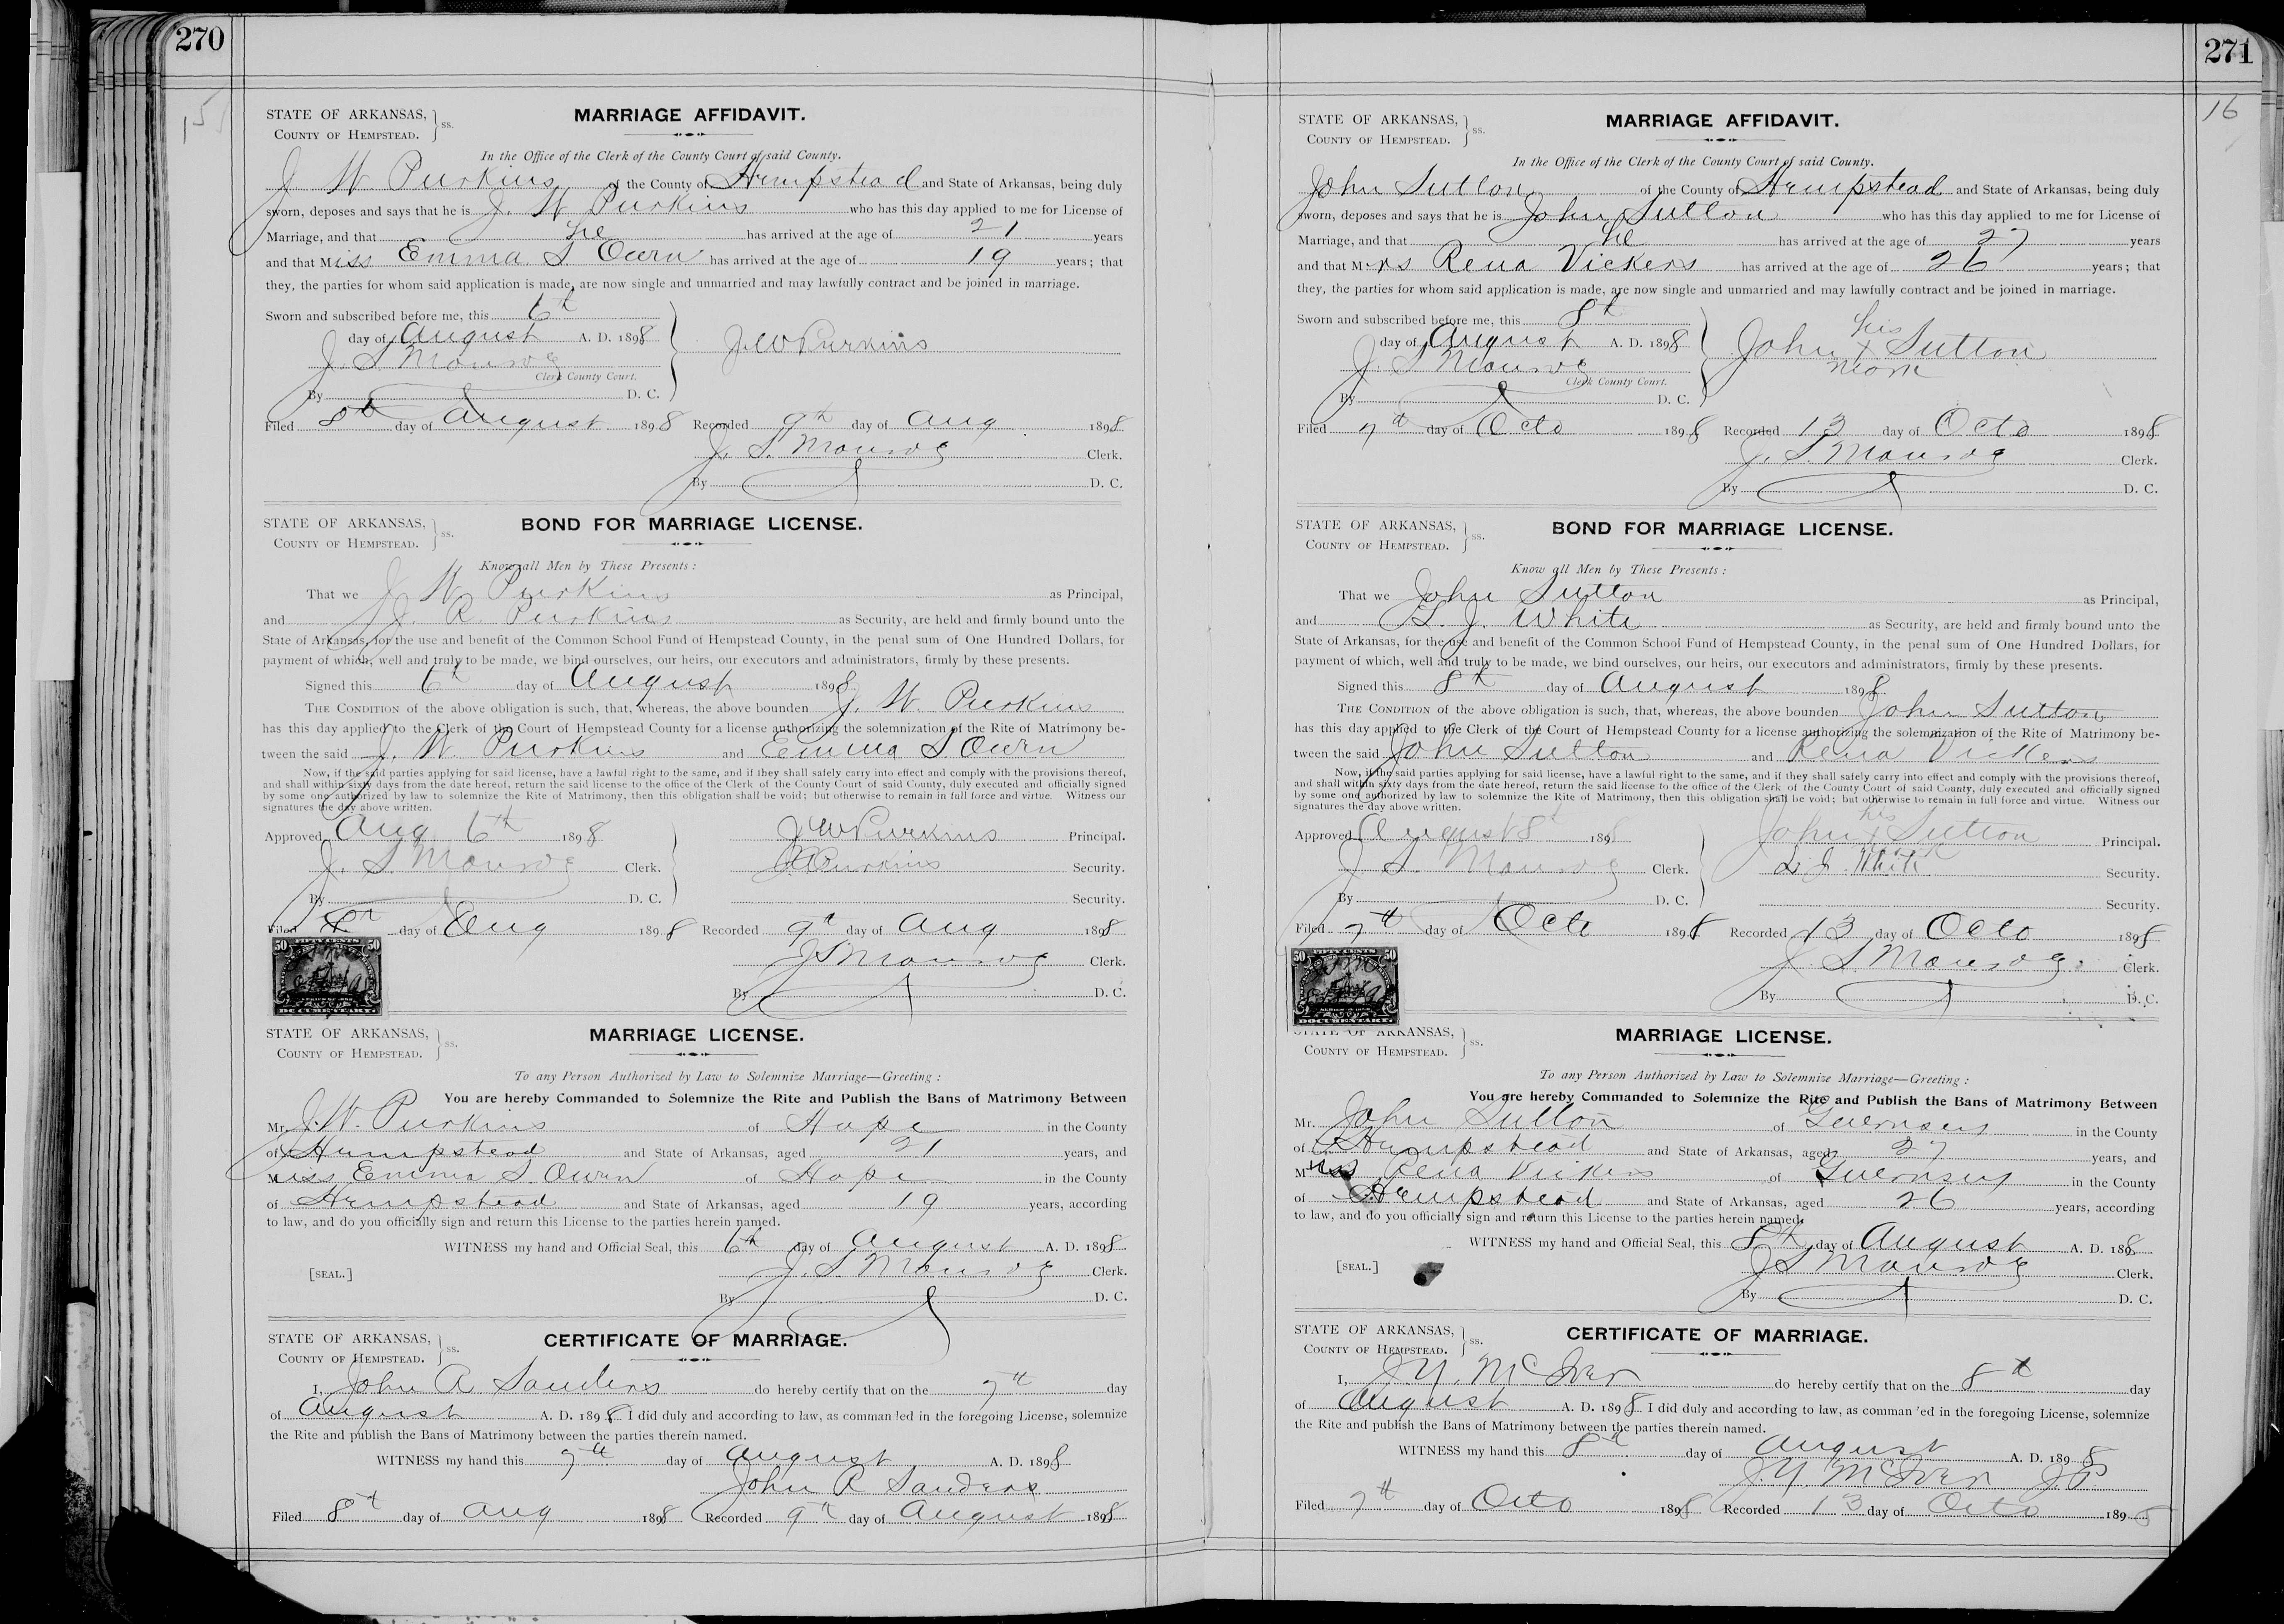 270
15
STATE OF ARKANSAS, } ss.
COUNTY OF HEMPSTEAD.
MARRIAGE AFFIDAVIT.
In the Office of the Clerk of the County Court of said County.
J W Purkins of the County of Hempstead and State of Arkansas, being duly
sworn, deposes and says that he is J. W Purkins who has this day applied to me for License of
Marriage, and that he has arrived at the age of 21 years
and that Miss Emma S Owen has arrived at the age of 19 years; that
they, the parties for whom said application is made, are now single and unmarried and may lawfully contract and be joined in marriage.
Sworn and subscribed before me, this 6th
day of August A. D. 1898
J W Purkins
J. S Monroe
Clerk County Court.
By D. C.
Filed 8th day of August 1898 Recorded 9th day of Aug 1898
J. S. Monroe Clerk.
By D. C.
STATE OF ARKANSAS, } ss.
COUNTY OF HEMPSTEAD.
BOND FOR MARRIAGE LICENSE.
Know all Men by These Presents:
That we J W Purkins as Principal,
and J. R. Purkins as Security, are held and firmly bound unto the
State of Arkansas, for the use and benefit of the Common School Fund of Hempstead County, in the penal sum of One Hundred Dollars, for
payment of which, well and truly to be made, we bind ourselves, our heirs, our executors and administrators, firmly by these presents.
Signed this 6th day of August 1898
THE CONDITION of the above obligation is such, that, whereas, the above bounden J. W. Purkins
has this day applied to the Clerk of the Court of Hempstead County for a license authorizing the solemnization of the Rite of Matrimony be-
tween the said J. W. Purkins and Emma S. Owen
Now, if the said parties applying for said license, have a lawful right to the same, and if they shall safely carry into effect and comply with the provisions thereof,
and shall within sixty days from the date hereof, return the said license to the office of the Clerk of the County Court of said County, duly executed and officially signed
by some one authorized by law to solemnize the Rite of Matrimony, then this obligation shall be void; but otherwise to remain in full force and virtue. Witness our
signatures the day above written.
Approved Aug 6th 1898 J W Purkins Principal.
J. S Monroe Clerk. J R Purkins Security.
By D. C. Security.
Filed 8th day of Aug 1898 Recorded 9th day of Aug 1898
50 FIFTY CENTS 50
DOCUMENTARY.
J S Monroe Clerk.
By D. C.
STATE OF ARKANSAS, } ss.
COUNTY OF HEMPSTEAD.
MARRIAGE LICENSE.
To any Person Authorized by Law to Solemnize Marriage—Greeting:
You are hereby Commanded to Solemnize the Rite and Publish the Bans of Matrimony Between
Mr. J. W. Purkins of Hope in the County
of Hempstead and State of Arkansas, aged 21 years, and
Miss Emma S. Owen of Hope in the County
of Hempstead and State of Arkansas, aged 19 years, according
to law, and do you officially sign and return this License to the parties herein named.
WITNESS my hand and Official Seal, this 6th day of August A. D. 1898
[SEAL.] J. S Monroe Clerk.
By D. C.
STATE OF ARKANSAS, } ss.
COUNTY OF HEMPSTEAD.
CERTIFICATE OF MARRIAGE.
I, John R Sanders do hereby certify that on the 7th day
of August A. D. 1898 I did duly and according to law, as commanded in the foregoing License, solemnize
the Rite and publish the Bans of Matrimony between the parties therein named.
WITNESS my hand this 7th day of August A. D. 1898
John R Sanders
Filed 8th day of Aug 1898 Recorded 9th day of August 1898
271
16
STATE OF ARKANSAS, } ss.
COUNTY OF HEMPSTEAD.
MARRIAGE AFFIDAVIT.
In the Office of the Clerk of the County Court of said County.
John Sutton of the County of Hempstead and State of Arkansas, being duly
sworn, deposes and says that he is John Sutton who has this day applied to me for License of
Marriage, and that he has arrived at the age of 27 years
and that Mrs Rena Vickers has arrived at the age of 26 years; that
they, the parties for whom said application is made, are now single and unmarried and may lawfully contract and be joined in marriage.
Sworn and subscribed before me, this 8th
day of August A. D. 1898
his
John x Sutton
mark
J. S Monroe
Clerk County Court.
By D. C.
Filed 7th day of Octo 1898 Recorded 13 day of Octo 1898
J. S Monroe Clerk.
By D. C.
STATE OF ARKANSAS, } ss.
COUNTY OF HEMPSTEAD.
BOND FOR MARRIAGE LICENSE.
Know all Men by These Presents:
That we John Sutton as Principal,
and L. J. White as Security, are held and firmly bound unto the
State of Arkansas, for the use and benefit of the Common School Fund of Hempstead County, in the penal sum of One Hundred Dollars, for
payment of which, well and truly to be made, we bind ourselves, our heirs, our executors and administrators, firmly by these presents.
Signed this 8th day of August 1898
THE CONDITION of the above obligation is such, that, whereas, the above bounden John Sutton
has this day applied to the Clerk of the Court of Hempstead County for a license authorizing the solemnization of the Rite of Matrimony be-
tween the said John Sutton and Rena Vickers
Now, if the said parties applying for said license, have a lawful right to the same, and if they shall safely carry into effect and comply with the provisions thereof,
and shall within sixty days from the date hereof, return the said license to the office of the Clerk of the County Court of said County, duly executed and officially signed
by some one authorized by law to solemnize the Rite of Matrimony, then this obligation shall be void; but otherwise to remain in full force and virtue. Witness our
signatures the day above written.
his
Approved August 8th 1898 John x Sutton Principal.
mark
J. S. Monroe Clerk. L. J. White Security.
By D. C. Security.
Filed 7th day of Octo 1898 Recorded 13 day of Octo 1898
50 FIFTY CENTS 50
DOCUMENTARY.
J. S Monroe Clerk.
By D. C.
STATE OF ARKANSAS, } ss.
COUNTY OF HEMPSTEAD.
MARRIAGE LICENSE.
To any Person Authorized by Law to Solemnize Marriage—Greeting:
You are hereby Commanded to Solemnize the Rite and Publish the Bans of Matrimony Between
Mr. John Sutton of Guernsey in the County
of Hempstead and State of Arkansas, aged 27 years, and
Mrs Rena Vickers of Guernsey in the County
of Hempstead and State of Arkansas, aged 26 years, according
to law, and do you officially sign and return this License to the parties herein named.
WITNESS my hand and Official Seal, this 8th day of August A. D. 1898
[SEAL.] J S Monroe Clerk.
By D. C.
STATE OF ARKANSAS, } ss.
COUNTY OF HEMPSTEAD.
CERTIFICATE OF MARRIAGE.
I, J. Y. McIver do hereby certify that on the 8th day
of August A. D. 1898 I did duly and according to law, as commanded in the foregoing License, solemnize
the Rite and publish the Bans of Matrimony between the parties therein named.
WITNESS my hand this 8th day of August A. D. 1898
J. Y McIver J.P.
Filed 7th day of Octo 1898 Recorded 13 day of Octo 1898